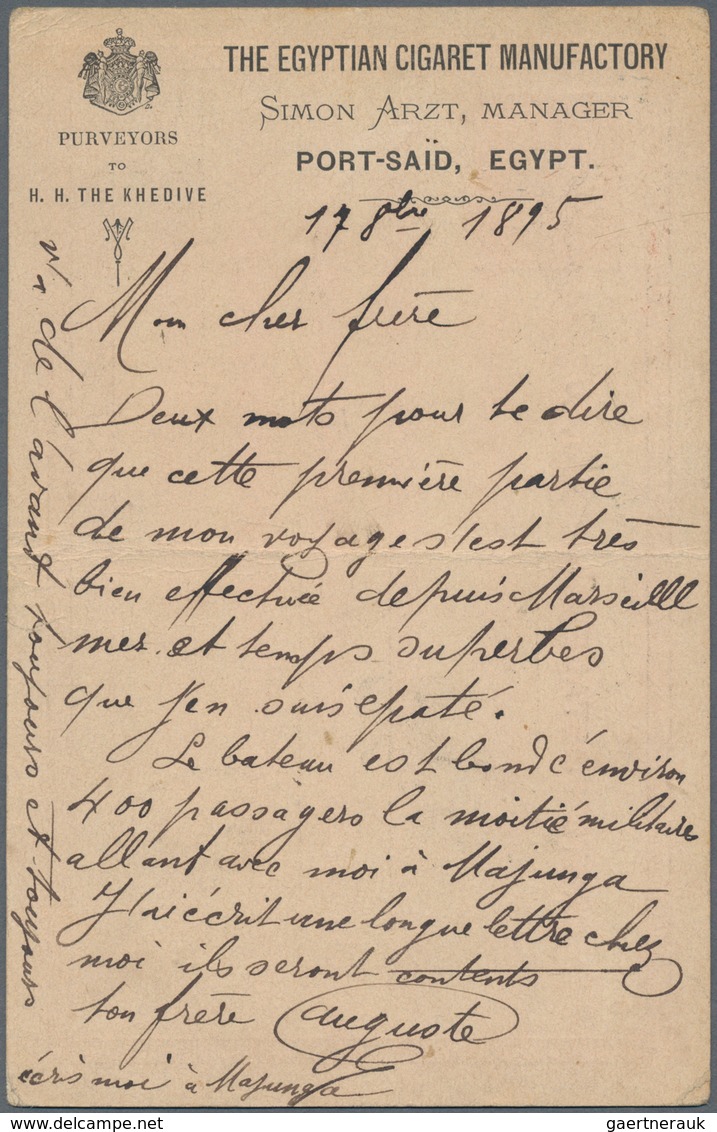 THE EGYPTIAN CIGARET MANUFACTORY
SIMON ARZT, MANAGER
PORT-SAÏD, EGYPT.
PURVEYORS
TO
H. H. THE KHEDIVE
17 8bre 1895
Mon cher frère
Deux mots pour te dire
que cette première partie
de mon voyage s'est très
bien effectuée depuis Marseille
mer et temps superbes
que j'en suis epaté.
Le bateau est bondé environ
400 passagers la moitié militaires
allant avec moi à Majunga
J'ai écrit une longue lettre chez
moi ils seront contents
ton frère Auguste
écris moi à Majunga
de l'avant toujours et toujours
gaertnerauk